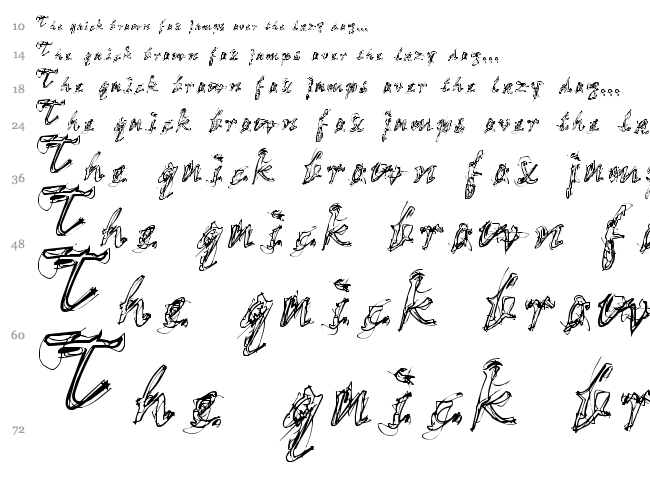 10 The quick brown fox jumps over the lazy dog...
14 The quick brown fox jumps over the lazy dog...
18 The quick brown fox jumps over the lazy dog...
24 The quick brown fox jumps over the la
36 The quick brown fox jumps
48 The quick brown fo
60 The quick brow
72 The quick br